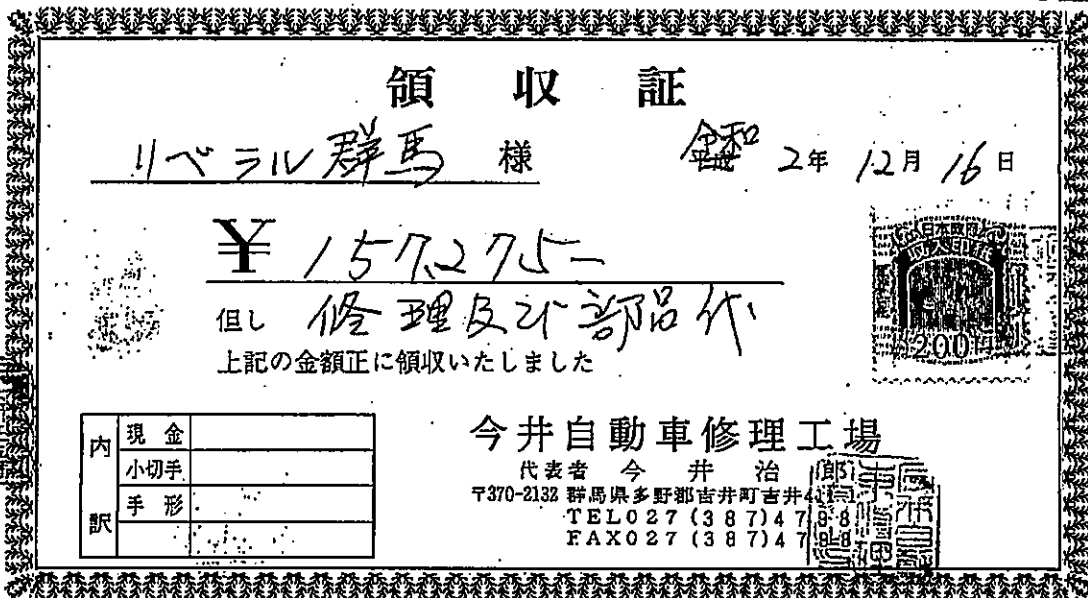 領収証
リベラル群馬 様
令和 2年 12月 16日
¥157,275-
但し 修理及び部品代
上記の金額正に領収いたしました
日本政府
200円
内訳
現金
小切手
手形
今井自動車修理工場
代表者 今井治郎
〒370-2132 群馬県多野郡吉井町吉井
TEL027(387)4798
FAX027(387)47